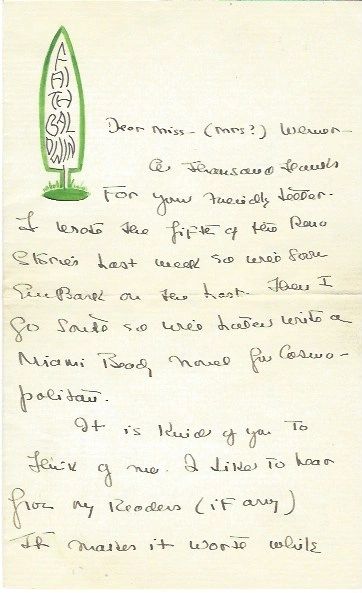 FAITH BALDWIN
Dear Miss - (Mrs?) Werner -
A thousand thanks
for your friendly letter.
I wrote the fifth of the Reno
stories last week so will soon
embark on the last. Then I
go South so will later write a
Miami Beach novel for Cosmo-
politan.
It is kind of you to
think of me. I like to hear
from my Readers (if any)
It makes it worth while